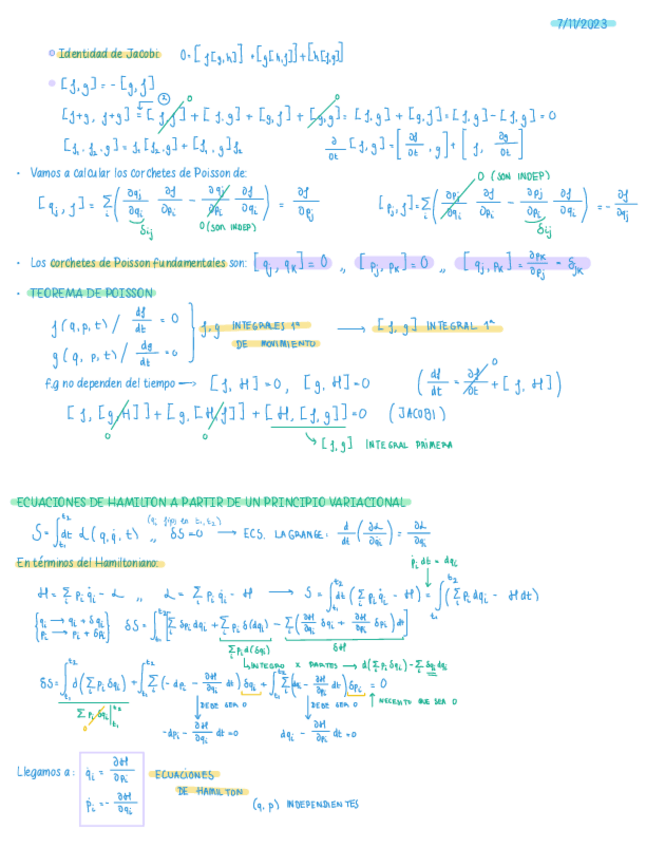 7/11/2023
Identidad de Jacobi: 0 = [f[g,h]] + [g[h,f]] + [h[f,g]]
[f,g] = -[g,f]
[f+g, f+g] = [f,f] + [f,g] + [g,f] + [g,g] = [f,g] + [g,f] = [f,g] - [f,g] = 0
② 0 0
[f₁·f₂,g] = f₁[f₂,g] + [f₁,g]f₂ ∂/∂t [f,g] = [∂f/∂t, g] + [f, ∂g/∂t]
· Vamos a calcular los corchetes de Poisson de:
0 (SON INDEP)
[qⱼ, f] = Σᵢ(∂qⱼ/∂qᵢ ∂f/∂pᵢ - ∂qⱼ/∂pᵢ ∂f/∂qᵢ) = ∂f/∂pⱼ [pⱼ, f] = Σᵢ(∂pⱼ/∂qᵢ ∂f/∂pᵢ - ∂pⱼ/∂pᵢ ∂f/∂qᵢ) = -∂f/∂qⱼ
δij 0 (SON INDEP) δij
· Los corchetes de Poisson fundamentales son: [qⱼ, qₖ] = 0 ,, [pⱼ, pₖ] = 0 ,, [qⱼ, pₖ] = ∂pₖ/∂pⱼ = δjk
· TEOREMA DE POISSON
f(q,p,t) / df/dt = 0
g(q,p,t) / dg/dt = 0
f,g INTEGRALES 1ª DE MOVIMIENTO → [f,g] INTEGRAL 1ª
f,g no dependen del tiempo → [f,H] = 0, [g,H] = 0 (df/dt = ∂f/∂t + [f,H])
0
[f,[g,H]] + [g,[H,f]] + [H,[f,g]] = 0 (JACOBI)
0 0 ↳ [f,g] INTEGRAL PRIMERA
ECUACIONES DE HAMILTON A PARTIR DE UN PRINCIPIO VARIACIONAL
(qᵢ fijo en t₁,t₂)
S = ∫ₜ₁ᵗ² dt L(q,q̇,t) ,, δS = 0 → ECS. LAGRANGE: d/dt(∂L/∂q̇ᵢ) = ∂L/∂qᵢ
En términos del Hamiltoniano:
H = Σᵢ pᵢq̇ᵢ - L ,, L = Σᵢ pᵢq̇ᵢ - H → S = ∫ₜ₁ᵗ² dt(Σᵢ pᵢq̇ᵢ - H) = ∫ₜ₁ᵗ²(Σᵢ pᵢdqᵢ - Hdt)
{qᵢ → qᵢ + δqᵢ
pᵢ → pᵢ + δpᵢ} δS = ∫ₜ₁ᵗ²[Σᵢ δpᵢdqᵢ + Σᵢ pᵢδ(dqᵢ) - Σᵢ(∂H/∂qᵢ δqᵢ + ∂H/∂pᵢ δpᵢ)dt]
Σᵢ pᵢd(δqᵢ) δH
↳ INTEGRO X PARTES → d(Σᵢ pᵢδqᵢ) - Σᵢ δqᵢdpᵢ
δS = ∫ₜ₁ᵗ² d(Σᵢ pᵢδqᵢ) + ∫ₜ₁ᵗ² Σᵢ(-dpᵢ - ∂H/∂qᵢ dt)δqᵢ + ∫ₜ₁ᵗ² Σᵢ(dqᵢ - ∂H/∂pᵢ dt)δpᵢ = 0
Σᵢ pᵢδqᵢ|ₜ₁ᵗ² ↓ DEBE SER 0 ↓ DEBE SER 0 ↑ NECESITO QUE SEA 0
0 -dpᵢ - ∂H/∂qᵢ dt = 0 dqᵢ - ∂H/∂pᵢ dt = 0
Llegamos a: q̇ᵢ = ∂H/∂pᵢ ECUACIONES
ṗᵢ = -∂H/∂qᵢ DE HAMILTON
(q,p) INDEPENDIENTES